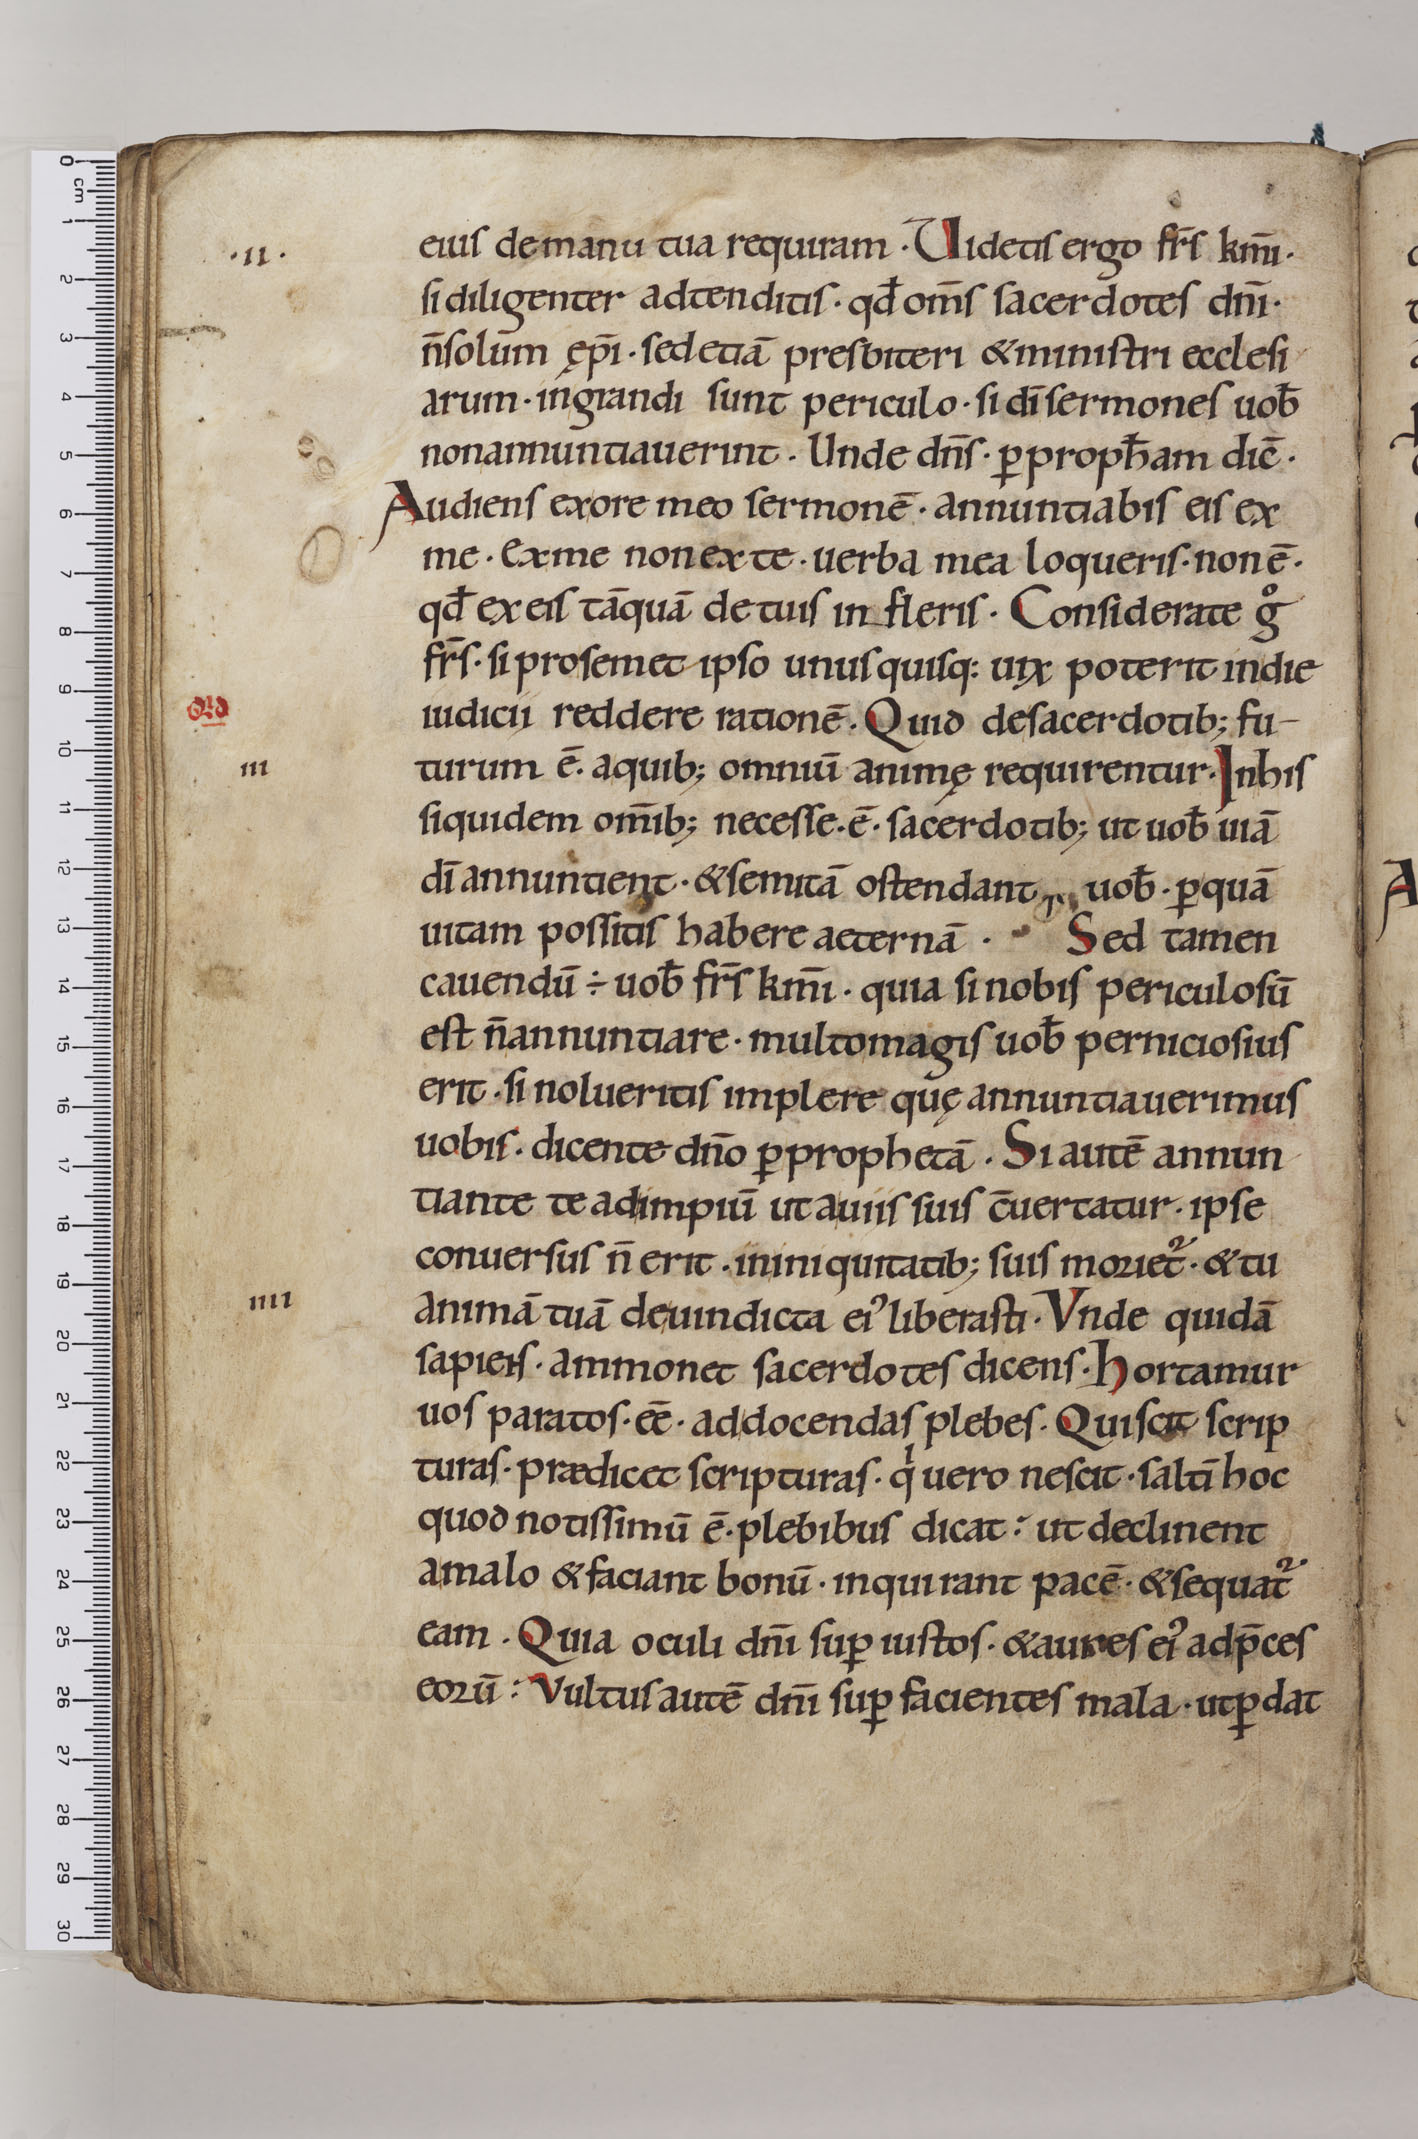 .II. eius de manu tua requiram · Uidetis ergo fr̄s km̄i ·
si diligenter adtenditis · qđ om̄s sacerdotes dn̄i ·
n̄ solum ep̄i · sed etiā presbiteri & ministri ecclesi
arum · in grandi sunt periculo · si dī sermones uoƀ
non annuntiauerint · Unde dn̄s · ꝑ propħam dic̄ ·
Audiens ex ore meo sermonē · annuntiabis eis ex
me · Ex me non ex te · uerba mea loqueris · non ē ·
qđ ex eis tāquā de tuis infleris · Considerate g̊
fr̄s · si pro semet ipso unusquisq: uix poterit in die
iudicii reddere rationē · Quid de sacerdotib; fu-
III turum ē · a quib; omniū animę requirentur · In his
siquidem om̄ib; necesse · ē · sacerdotib; ut uoƀ uiā
dī annuntient · & semitā ostendant uoƀ · ꝑ quā
uitam possitis habere aeternā · Sed tamen
cauendū ÷ uoƀ fr̄s km̄i · quia si nobis periculosū
est n̄ annuntiare · multo magis uoƀ perniciosius
erit · si nolueritis implere quę annuntiauerimus
uobis · dicente dn̄o ꝑ prophetā · Si autē annun
tiante te ad impiū ut a uiis suis c̄uertatur · ipse
conuersus n̄ erit · in iniquitatib; suis moriet᷑ · & tu
IIII animā tuā de uindicta ei᾿ liberasti · Vnde quidā
sapiens · ammonet sacerdotes dicens · Hortamur
uos paratos · eē · ad docendas plebes · Qui scit scrip
turas · prædicet scripturas · qͥ uero nescit · saltī hoc
quod notissimū ē · plebibus dicat : ut declinent
a malo & faciant bonū · inquirant pacē · & sequat᷑
eam · Quia oculi dn̄i suꝑ iustos · & aures ei᾿ ad p̄ces
eorū : Vultus autē dn̄i suꝑ facientes mala · ut ꝑdat